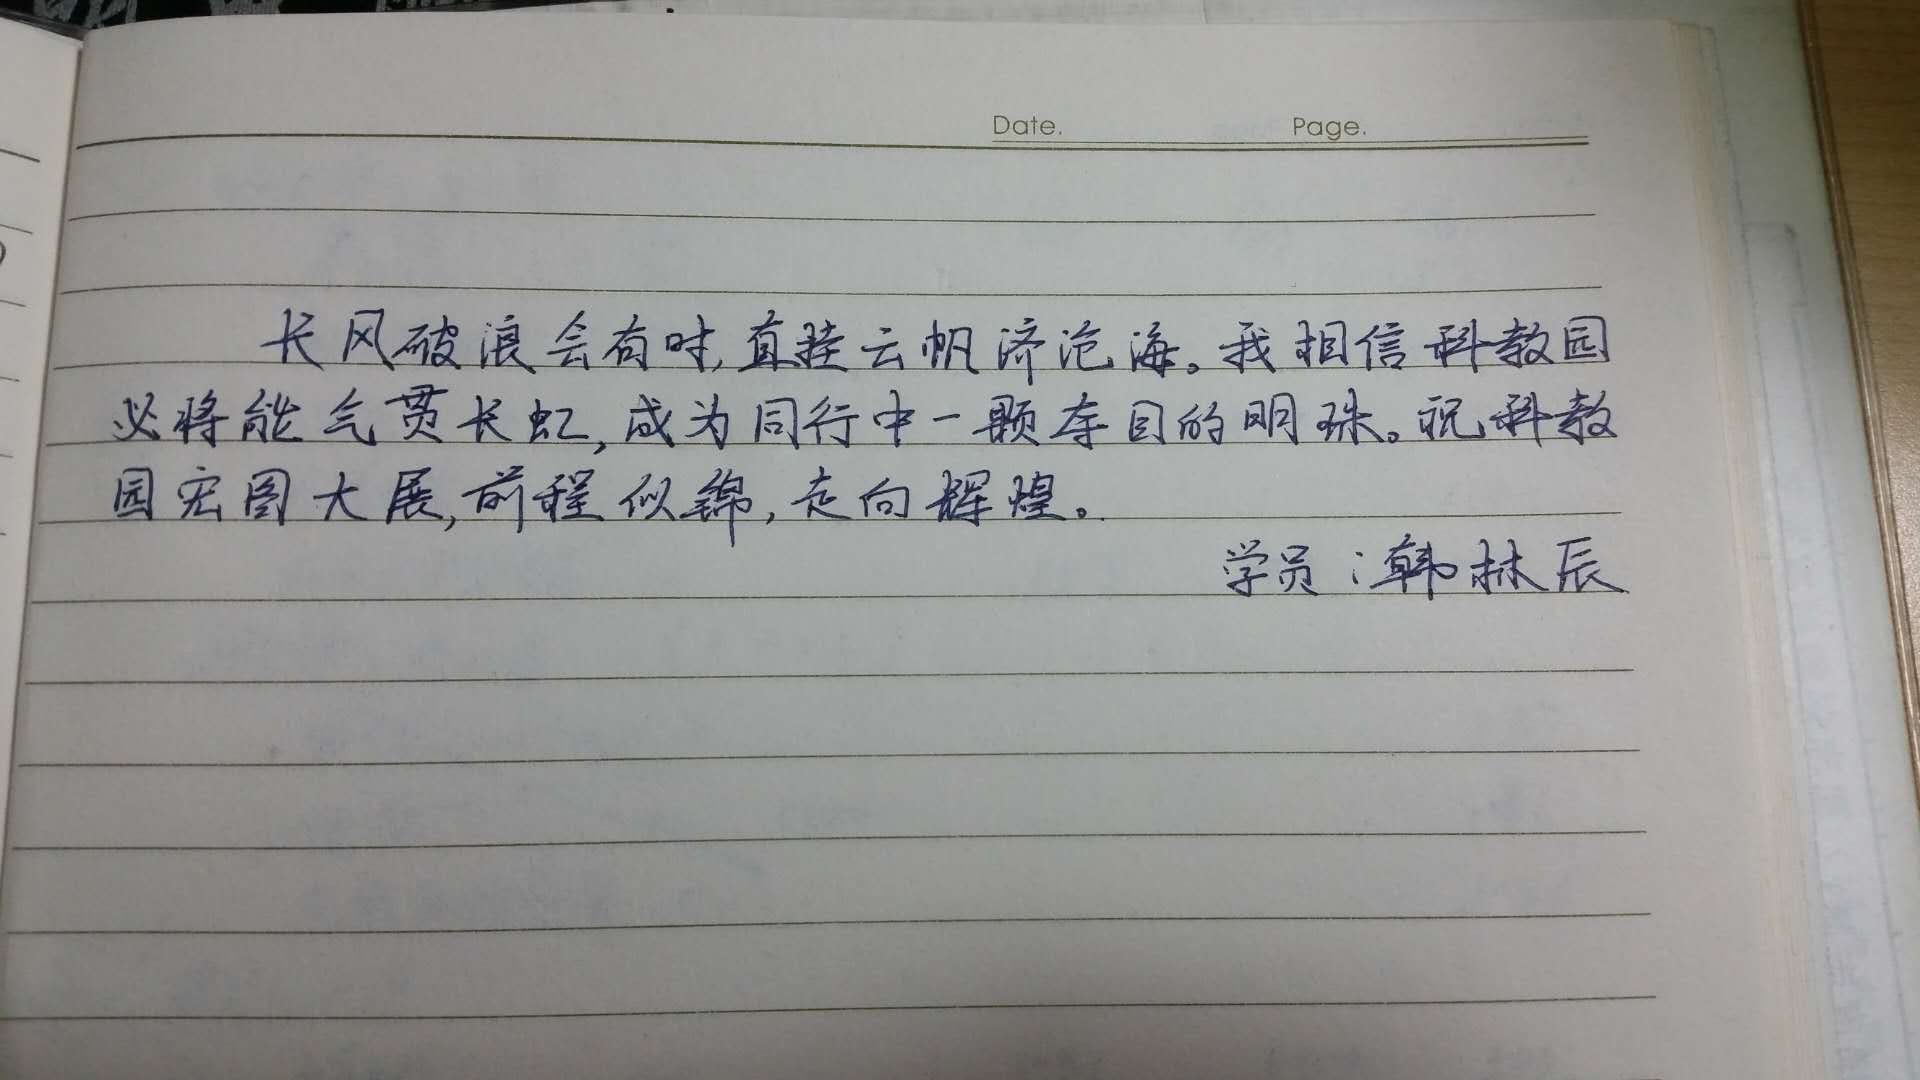 Date. Page.
长风破浪会有时,直挂云帆济沧海。我相信科教园
必将能气贯长虹,成为同行中一颗夺目的明珠。祝科教
园宏图大展,前程似锦,走向辉煌。
学员:韩林辰